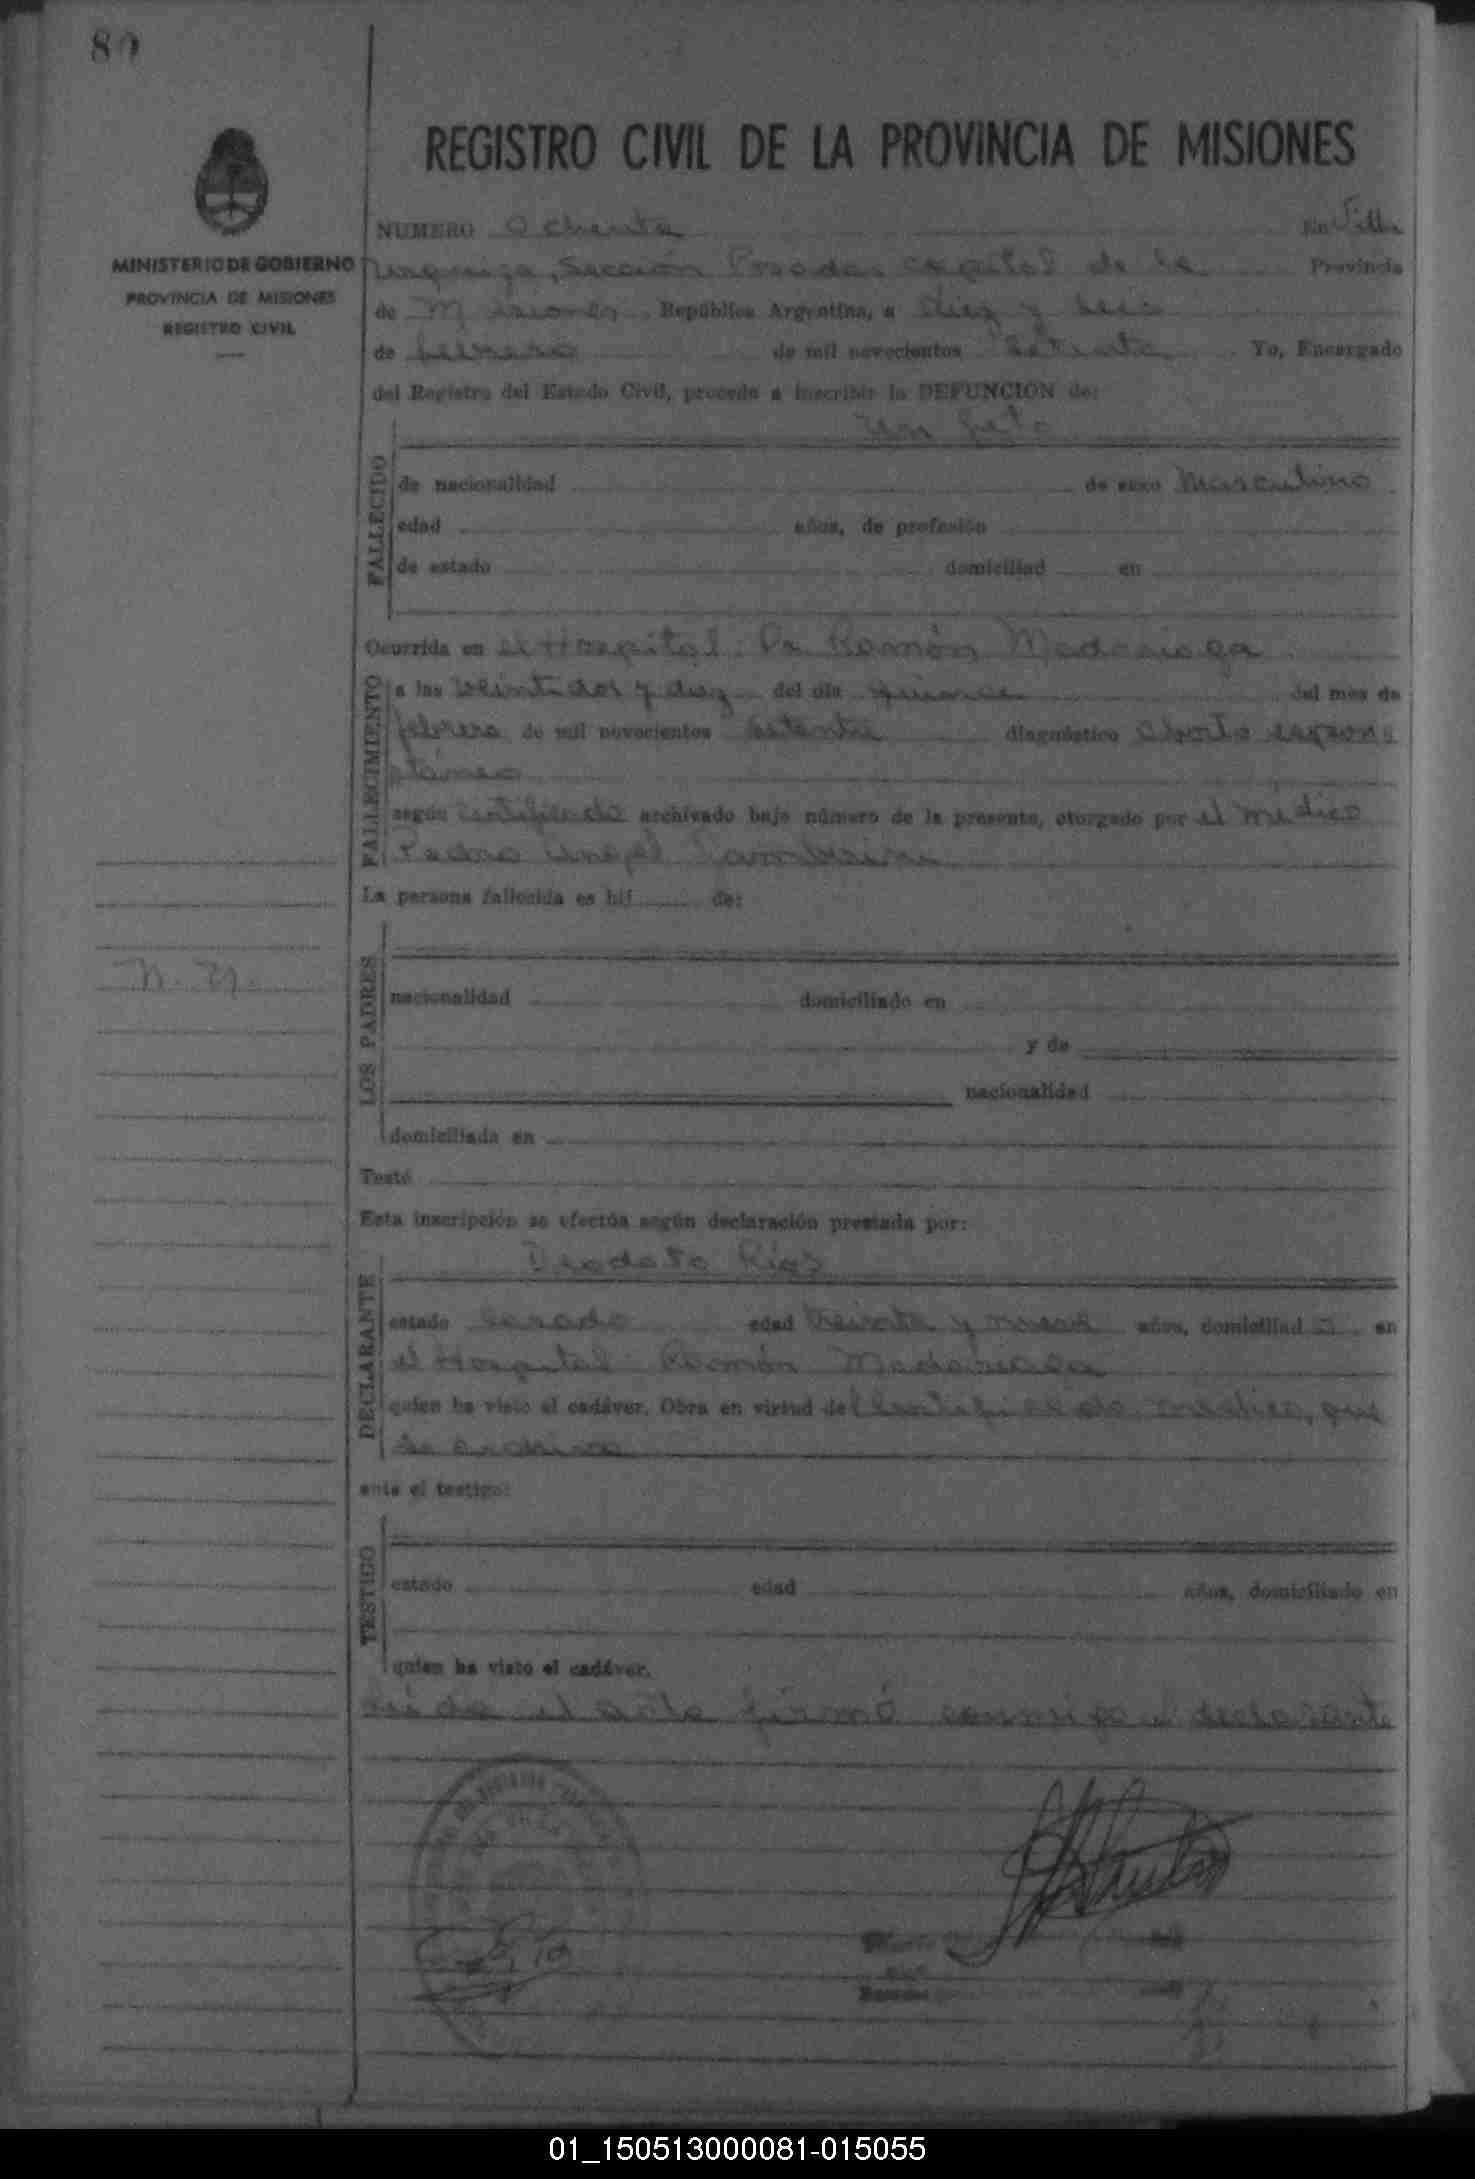 80
REGISTRO CIVIL DE LA PROVINCIA DE MISIONES
MINISTERIO DE GOBIERNO
PROVINCIA DE MISIONES
REGISTRO CIVIL
NUMERO Ochenta En Villa
Urquiza, Sección Posadas capital de la Provincia
de Misiones, República Argentina, a diez y seis
de febrero de mil novecientos setenta. Yo, Encargado
del Registro del Estado Civil, procedo a inscribir la DEFUNCION de:
Un feto
FALLECIDO
de nacionalidad de sexo Masculino
edad años, de profesión
de estado domiciliad en
Ocurrida en el Hospital Dr. Ramón Madariaga
FALLECIMIENTO
a las veintidos y diez del día quince del mes de
febrero de mil novecientos setenta diagnóstico aborto espon-
táneo
según certificado archivado bajo número de la presente, otorgado por el médico
Pedro Angel
La persona fallecida es hij de:
N. N.
LOS PADRES
nacionalidad domiciliado en
y de
nacionalidad
domiciliada en
Testó
Esta inscripción se efectúa según declaración prestada por:
Deodato Ríos
DECLARANTE
estado casado edad treinta y nueve años, domiciliad o en
el Hospital Ramón Madariaga
quien ha visto el cadáver. Obra en virtud del certificado médico, que
se archiva
ante el testigo:
TESTIGO
estado edad años, domiciliado en
quien ha visto el cadáver.
Leída el acta firmó conmigo el declarante
01_150513000081-015055